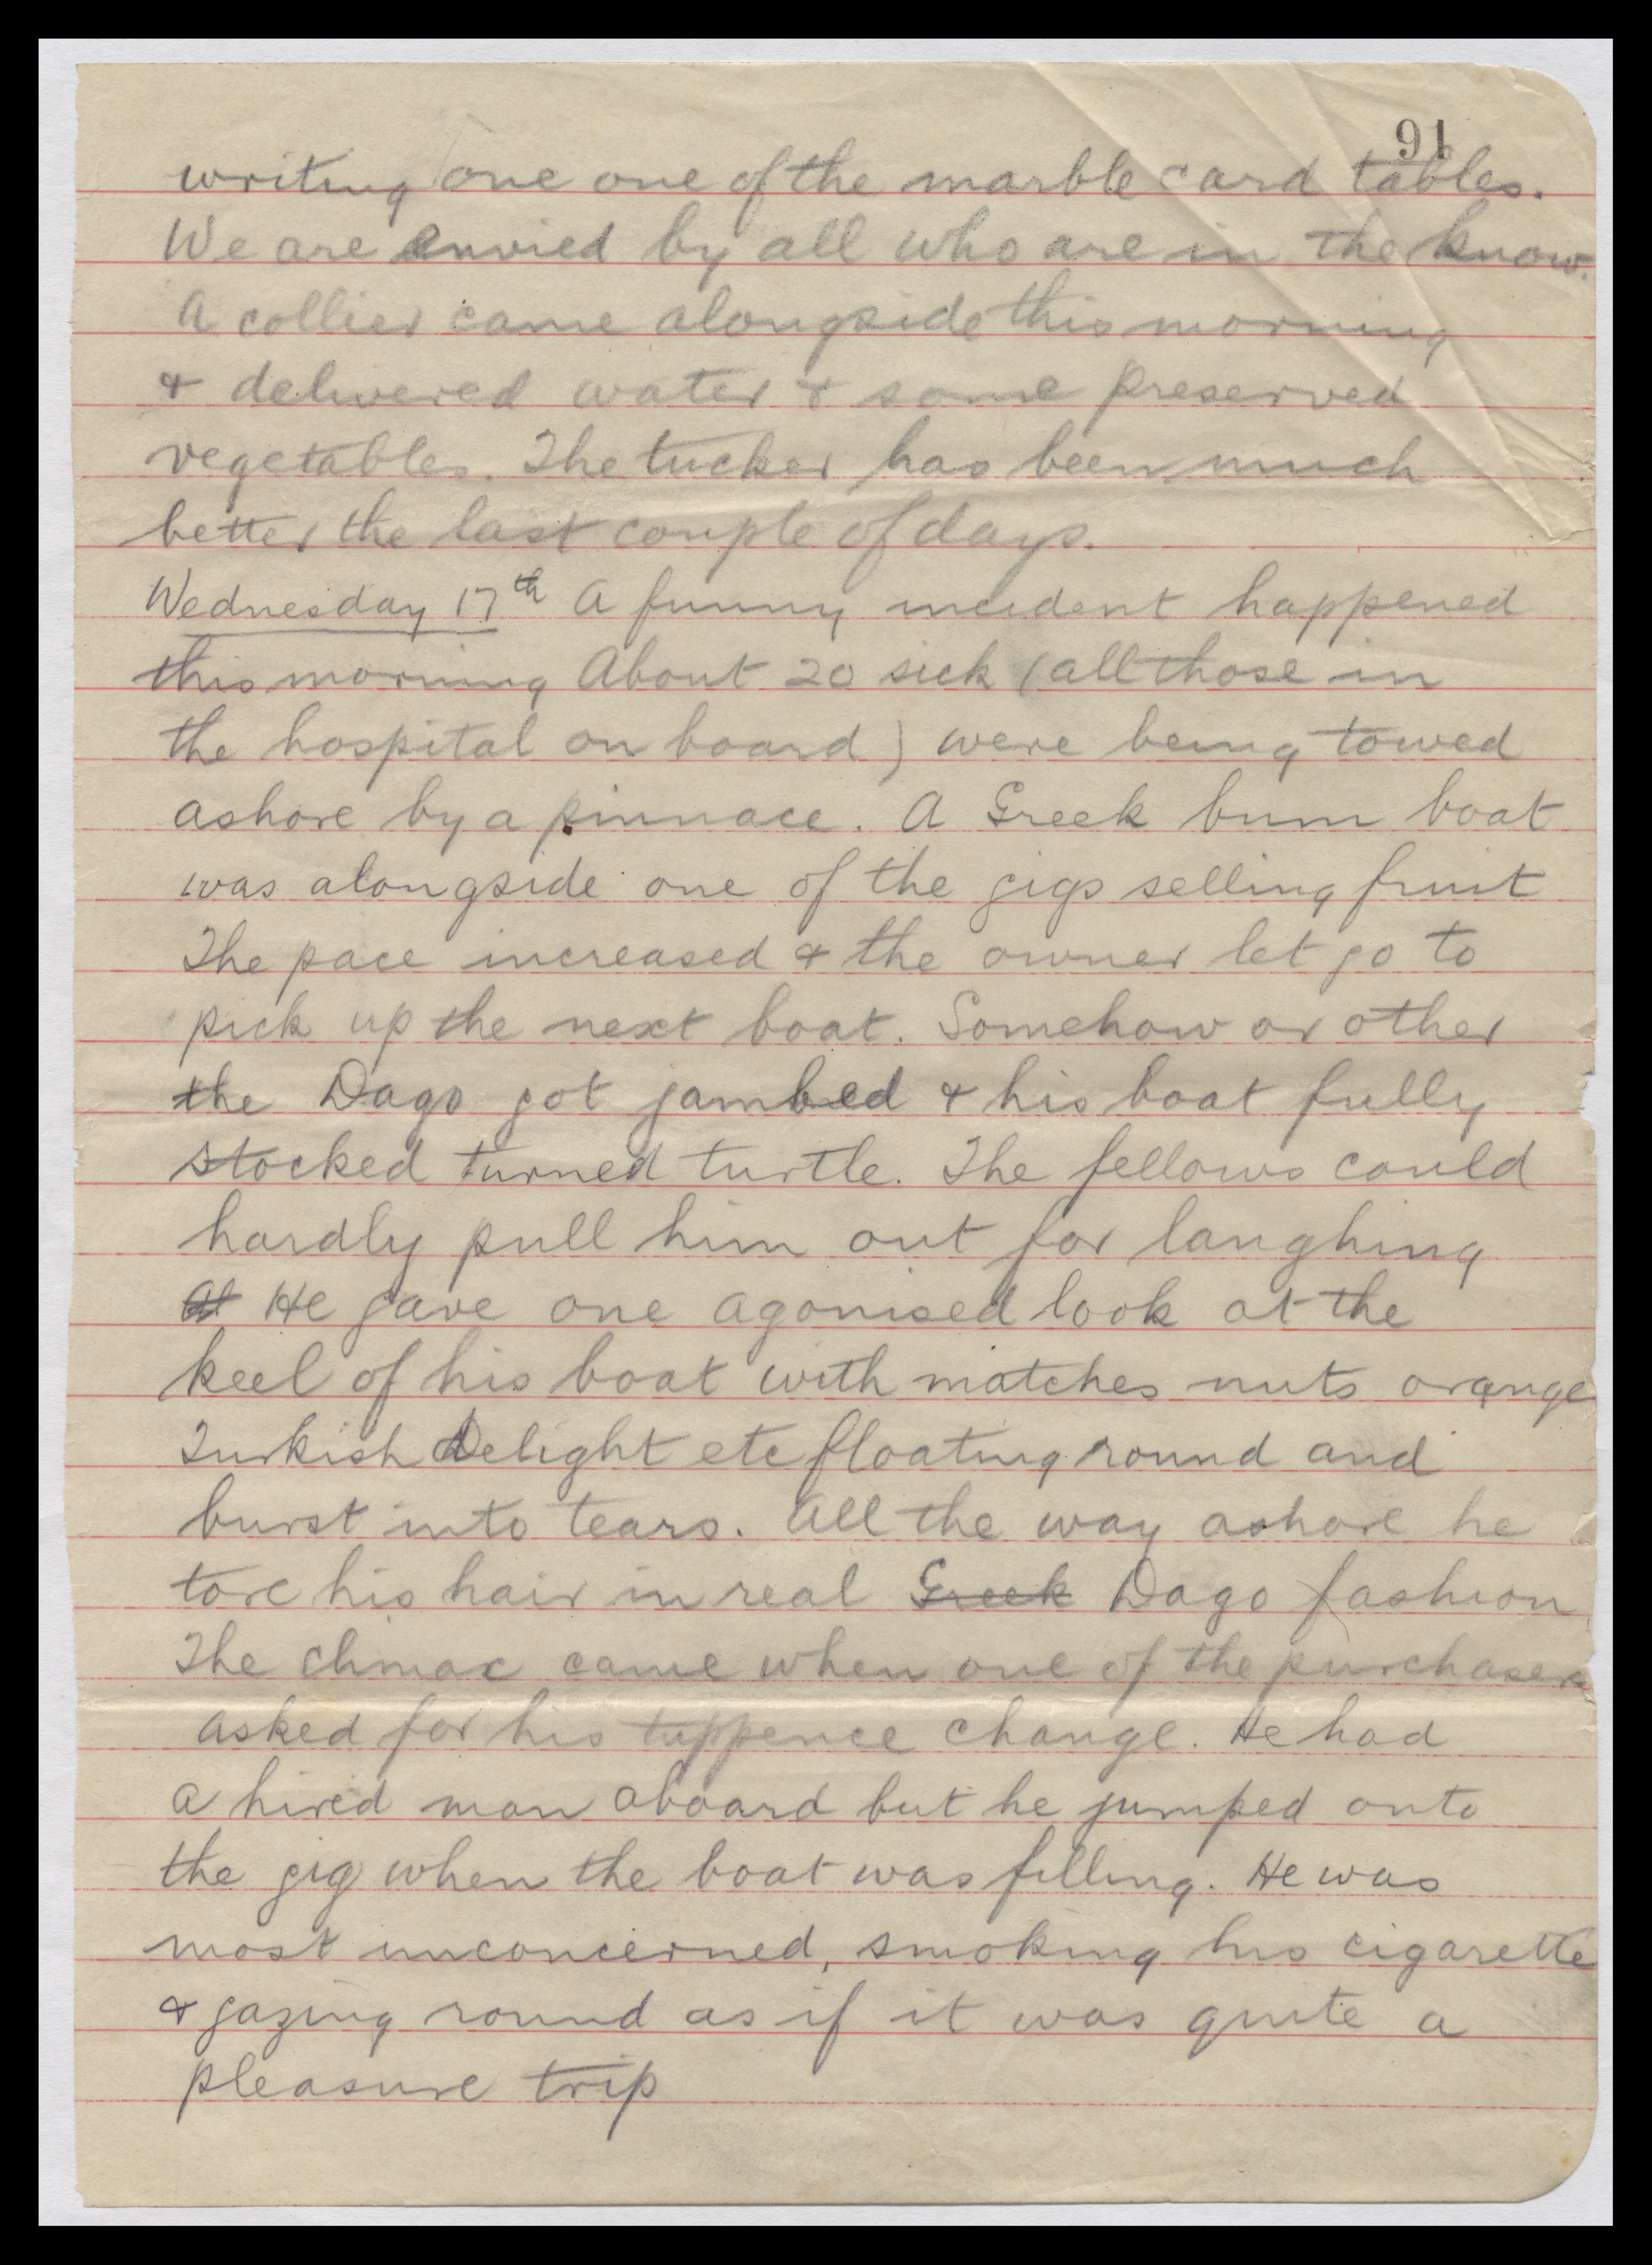 91
writing one one of the marble card tables.
We are envied by all who are in the know.
A collier came alongside this morning
& delivered water & some preserved
vegetables. The tucker has been much
better the last couple of days.
Wednesday 17th A funny incident happened
this morning About 20 sick (all those in
the hospital on board) were being towed
ashore by a pinnace. A Greek bum boat
was alongside one of the gigs selling fruit
The pace increased & the owner let go to
pick up the next boat. Somehow or other
the Dago got jambed & his boat fully
stocked turned turtle. The fellows could
hardly pull him out for laughing
At He gave one agonised look at the
keel of his boat with matches nuts orange
Turkish Delight etc floating round and
burst into tears. All the way ashore he
tore his hair in real Greek Dago fashion
The climac came when one of the purchasers
asked for his tuppence change. He had
a hired man aboard but he jumped onto
the gig when the boat was filling. He was
most unconcerned, smoking his cigarette
& gazing round as if it was quite a
pleasure trip